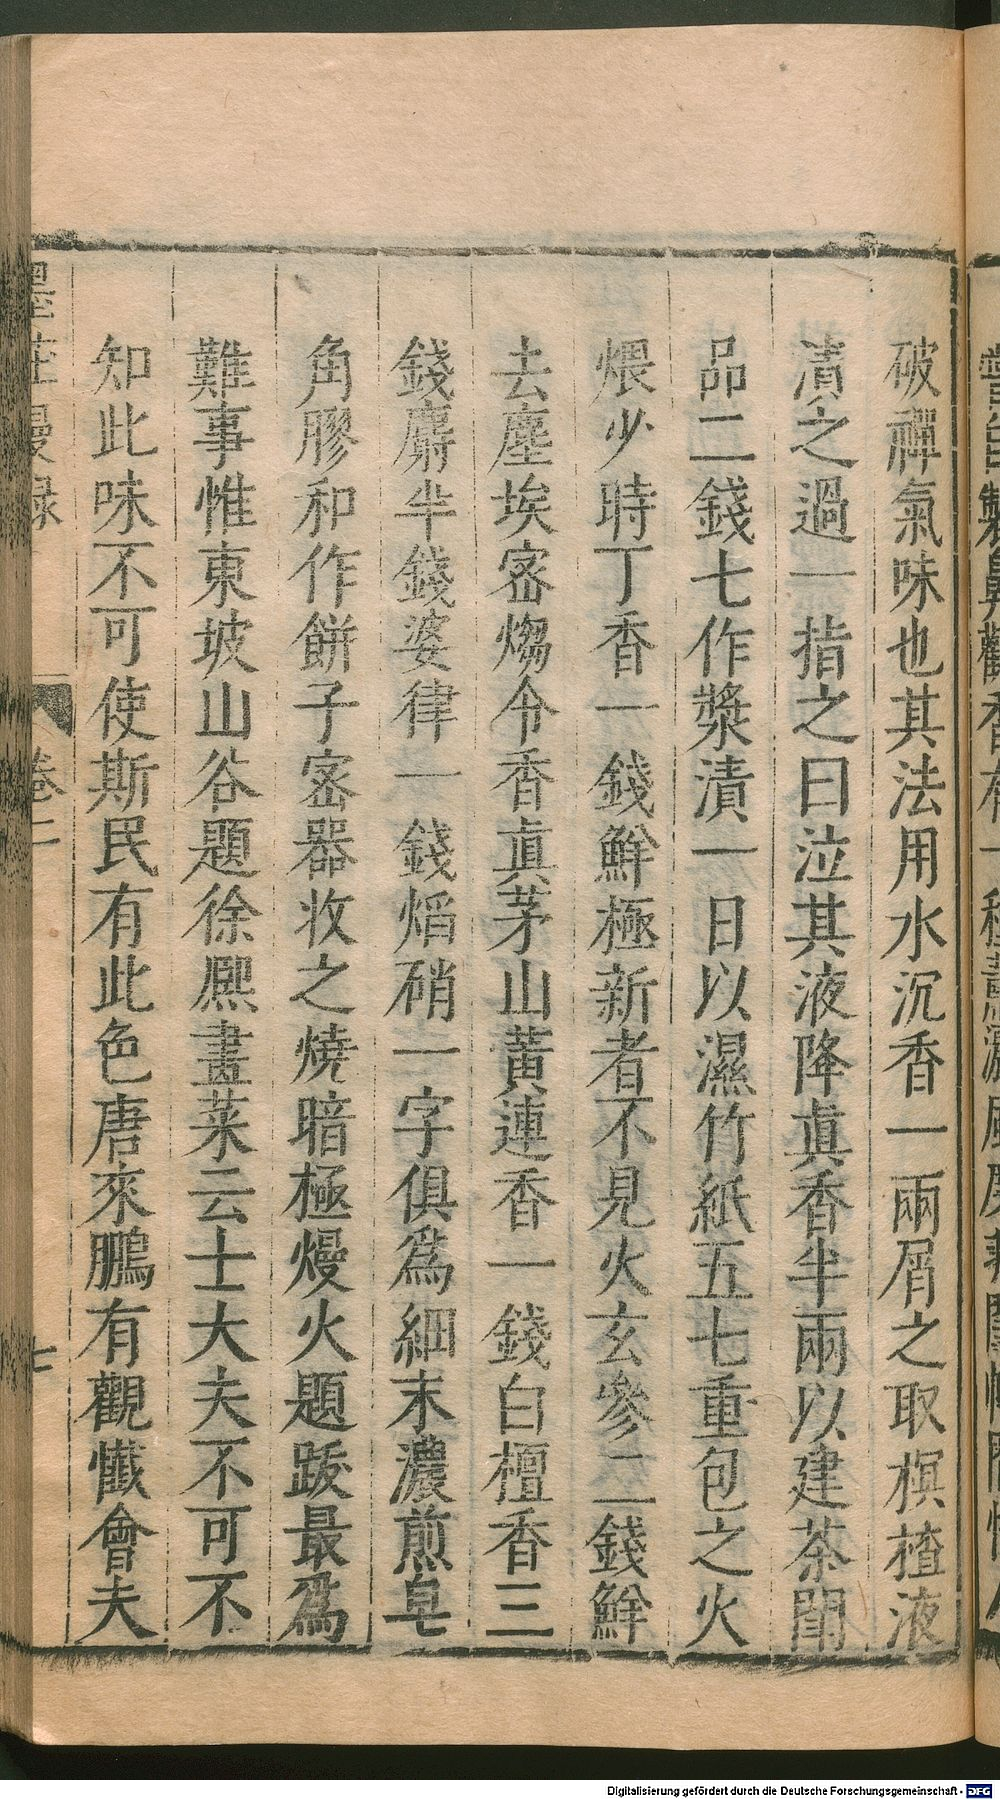 破禪氣味也其法用水沉香一兩屑之取榠樝液
漬之過一指之曰泣其液降真香半兩以建茶鬭
品二錢七作漿漬一日以濕竹紙五七重包之火
煨少時丁香一錢鮮極新者不見火玄參二錢鮮
去塵埃宻煼令香真茅山黃連香一錢白檀香三
錢麝半錢婆律一錢熖硝一字俱為細末濃煎皂
角膠和作餅子宻器收之燒暗極熳火題䟦最為
難事惟東坡山谷題徐熈畫菜云士大夫不可不
知此味不可使斯民有此色唐來鵬有觀懺會夫
墨莊漫錄
卷二
七
Digitalisierung gefördert durch die Deutsche Forschungsgemeinschaft - DFG